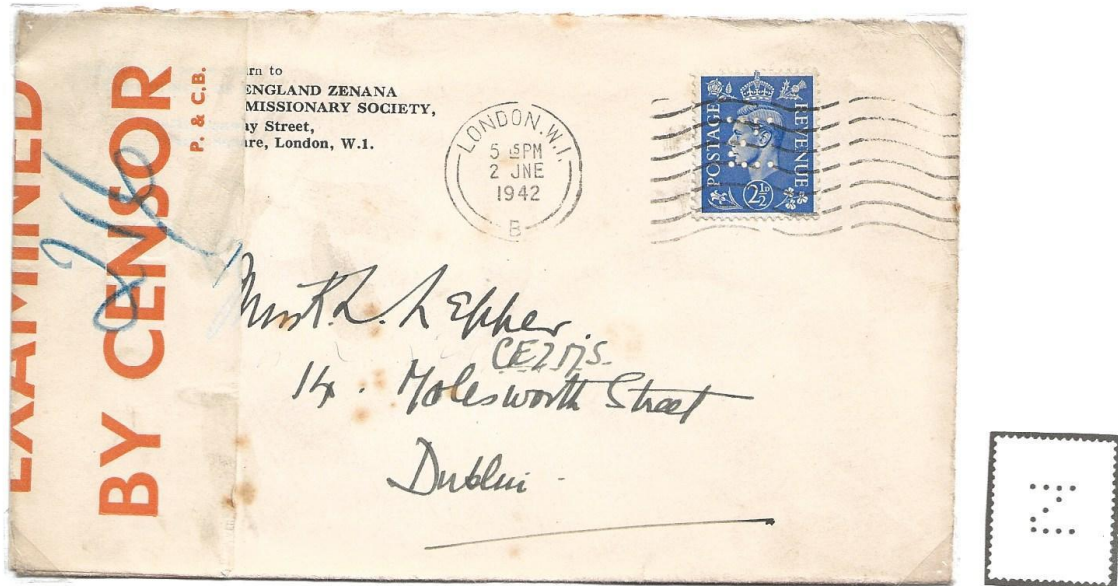 EXAMINED
BY CENSOR
P. & C.B.
rn to
ENGLAND ZENANA
MISSIONARY SOCIETY,
ay Street,
are, London, W.1.
LONDON.W.1.
5 15PM
2 JNE
1942
B
POSTAGE REVENUE
2½D
L. Epper
CEZMS.
14. Molesworth Street
Dublin